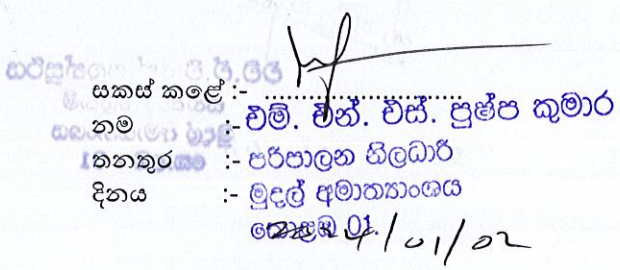 සකස් කළේ :- ........................
නම :- එම්. එන්. එස්. පුෂ්ප කුමාර
තනතුර :- පරිපාලන නිලධාරි
දිනය :- මුදල් අමාත්‍යාංශය
කොළඹ 01.
/01/02